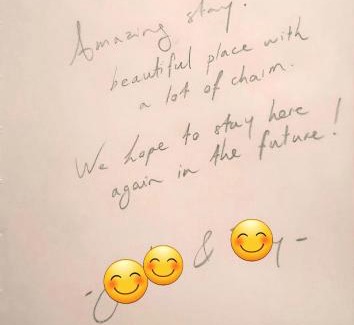 Amazing stay.
beautiful place with
a lot of charm.
We hope to stay here
again in the future!
&